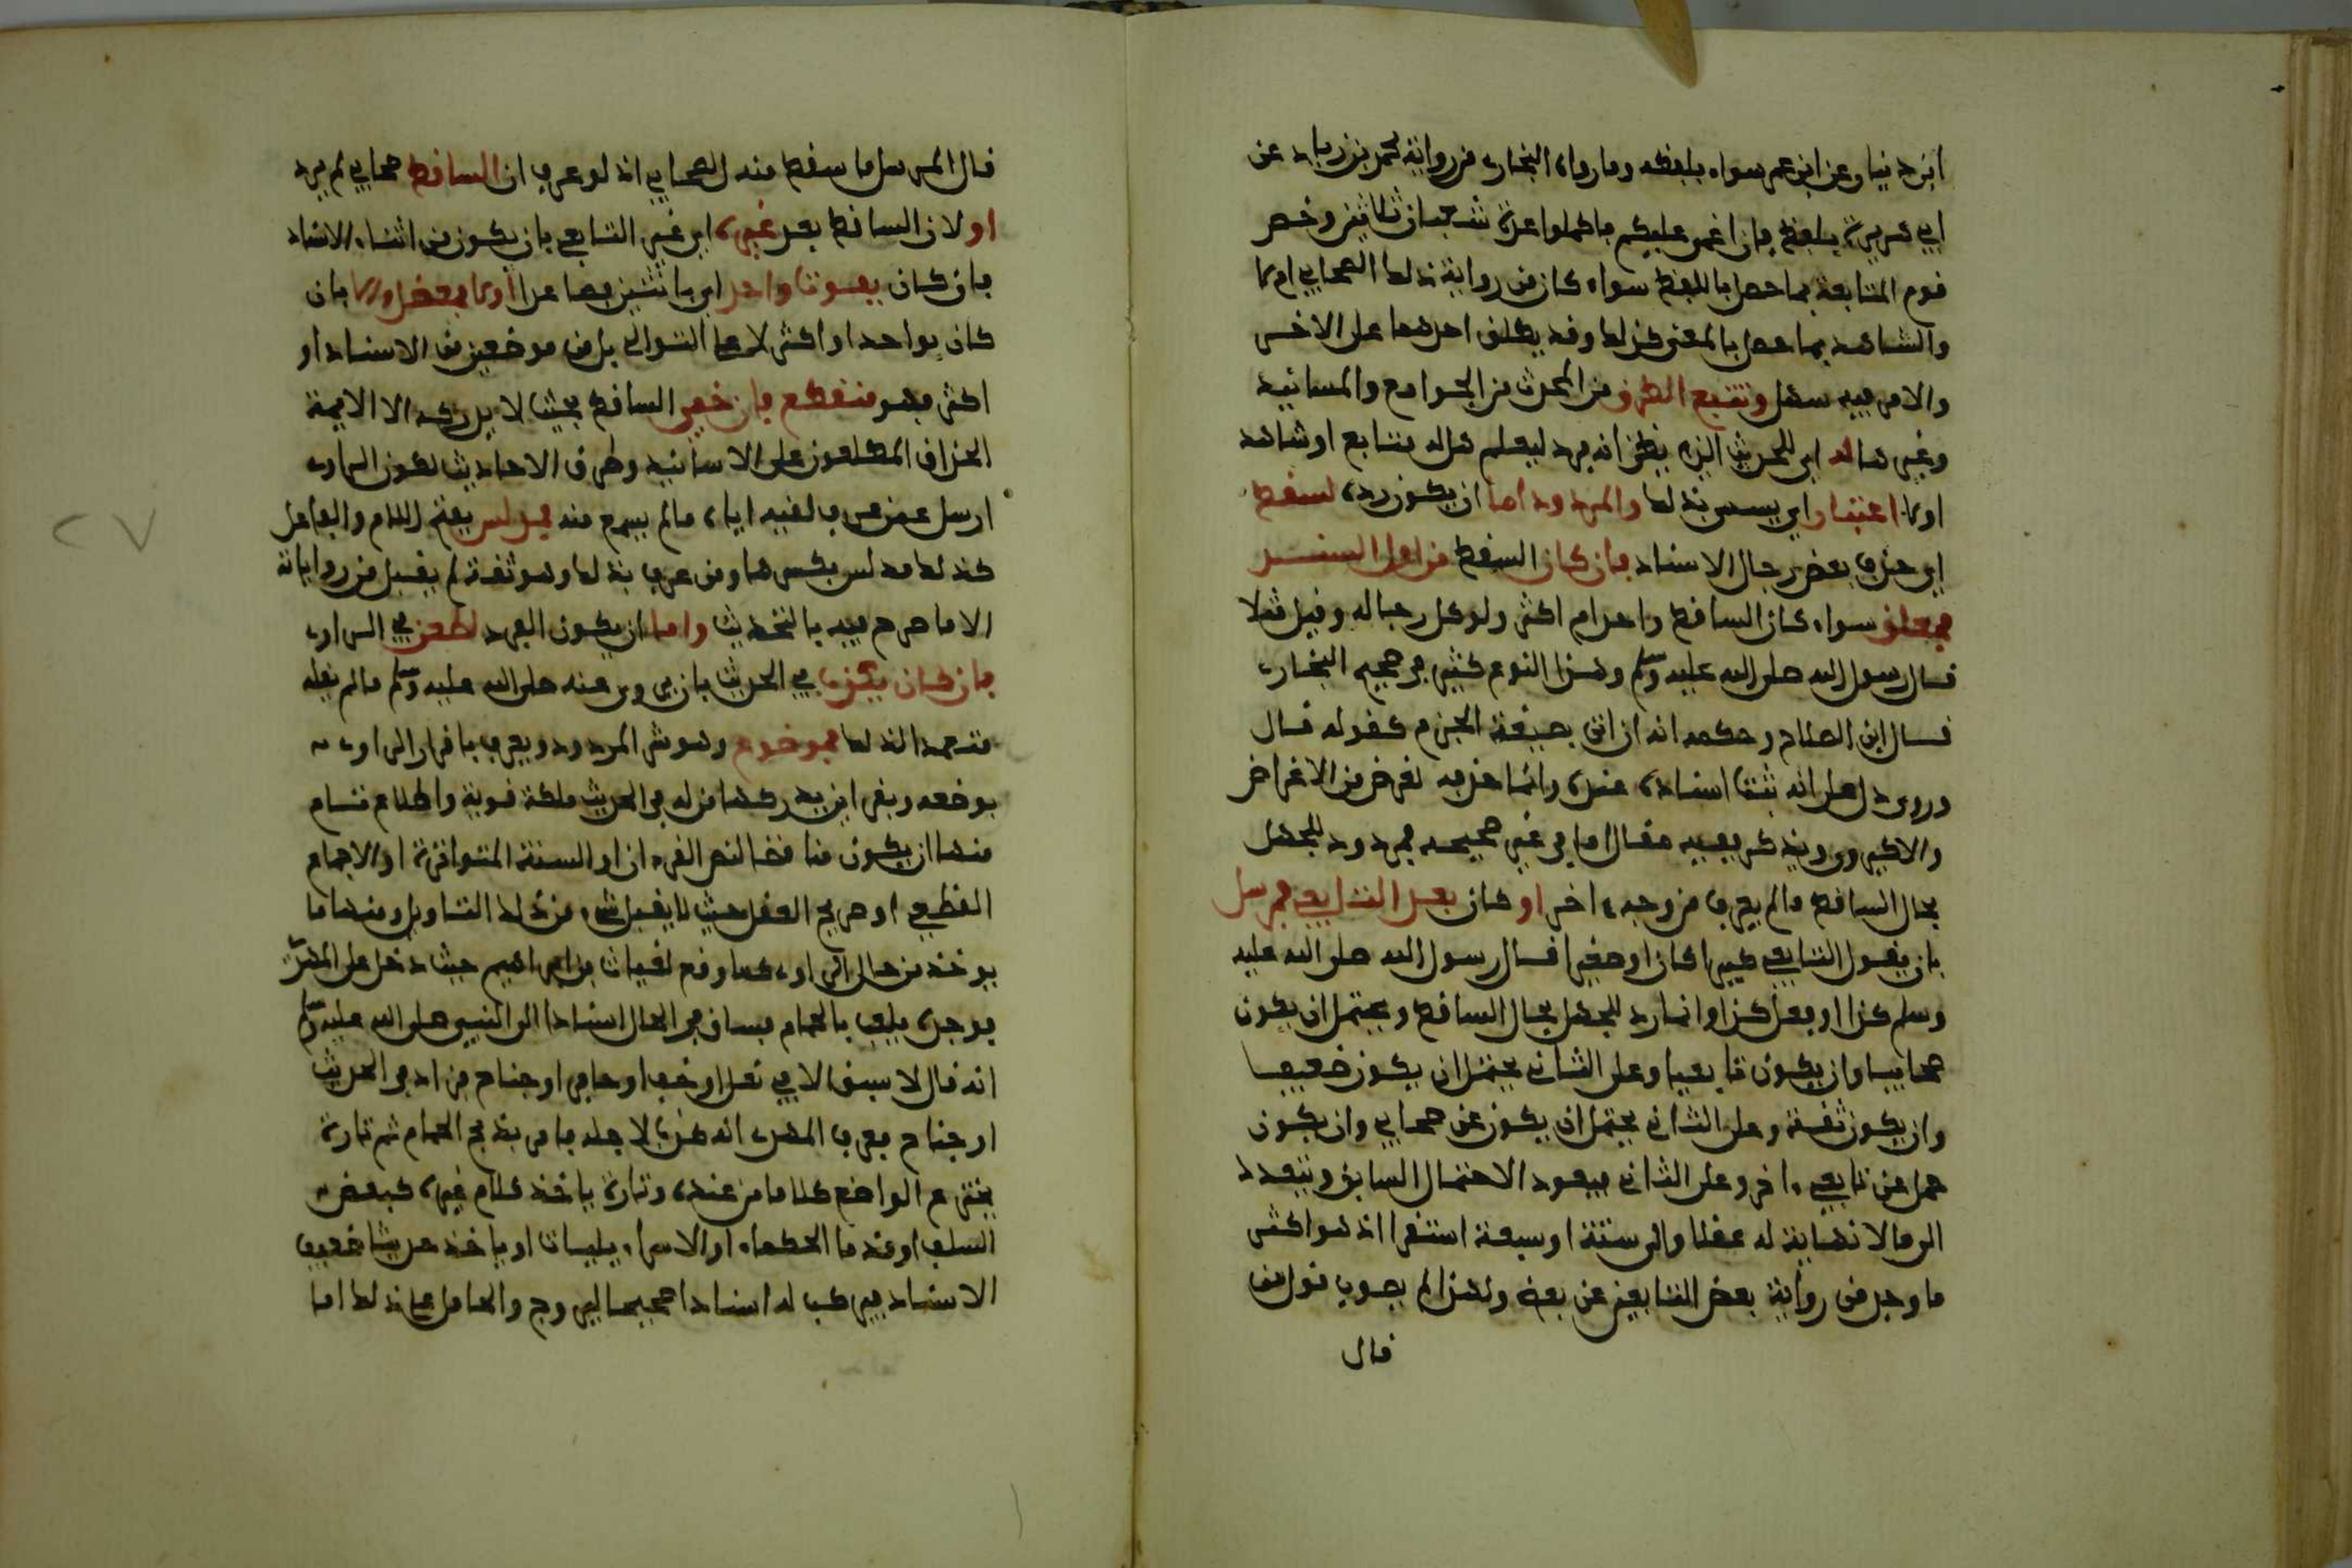 ابن دينار عن ابن عمر سواء بلفظه وما رواه البخاري من رواية محمد بن زياد عن
ابي هريرة بلفظ فان اغمي عليكم فاكملوا عدة شعبان ثلاثين وخص
قوم المتابعة بما حصل باللفظ سواء كان من رواية ذلك الصحابي ام لا
والشاهد بما حصل بالمعنى كذلك وقد يطلق احدهما على الاخر
والامر فيه سهل وتتبع الطرق من المحدث من الجوامع والمسانيد
وغيرها له اي للحديث الذي يظن انه فرد ليعلم هل له متابع او شاهد
او لا اعتبار اي يسمى بذلك والمردود اما ان يكون رده لسقط
اي حذف بعض رجال الاسناد فان كان السقط من اول السند
فمعلق سواء كان الساقط واحدا ام اكثر ولو كل رجاله وقيل مثلا
قال رسول الله صلى الله عليه وسلم وهذا النوع كثير في صحيح البخاري
قال ابن الصلاح وحكمه انه ان اتى بصيغة الجزم كقوله قال
وروى دل على انه ثبت اسناده عنده وانما حذفه لغرض من الاغراض
والا كيروى ويذكر ففيه مقال اما في غير صحيحه فمردود للجهل
بحال الساقط ما لم يعرف من وجه ءاخر او كان بعد التابعي فمرسل
بان يقول التابعي كبيرا كان او صغيرا قال رسول الله صلى الله عليه
وسلم كذا او فعل كذا وانما رد للجهل بحال الساقط ويحتمل ان يكون
صحابيا وان يكون تابعيا وعلى الثاني يحتمل ان يكون ضعيفا
وان يكون ثقة وعلى الثاني يحتمل ان يكون عن صحابي وان يكون
حمل عن تابعي ءاخر وعلى الثاني فيعود الاحتمال السابق ويتعدد
الى ما لا نهاية له عقلا والى ستة او سبعة استقرا اذ هو اكثر
ما وجد من رواية بعض التابعين عن بعض ولهذا لم يصوب قول من
قال
قال المرسل ما سقط منه الصحابي اذ لو عرف ان الساقط صحابي لم يرد
او لان الساقط بعد غيره اي غير التابعي بان يكون من اثناء الاسناد
فان كان بفوق واحد اي باثنين فصاعدا ولا فمعضل والا بان
كان بواحد او اكثر لا على التوالي بل من موضعين من الاسناد او
اكثر فهو منقطع فان خفي الساقط بحيث لا يدركه الا الايمة
الحذاق المطلعون على الاسانيد وطرق الاحاديث لكون الراوي
ارسل عمن عرف لقيه اياه ما لم يسمع منه فمدلس بفتح اللام والفاعل
كذلك مدلس بكسرها ومن عرف بذلك وهو ثقة لم يقبل من رواياته
الا ما صرح فيه بالتحديث واما ان يكون الرد لطعن في الراوي
فان كان بكذب في الحديث بان يروي عنه صلى الله عليه وسلم ما لم يقله
متعمدا لذلك فموضوع وهو شر المردود ويعرف باقرار الراوي
بوضعه وبقراين يدركها من له في الحديث ملكة قوية واطلاع تام
منها ان يكون مناقضا لنص القرءان او السنة المتواترة او الاجماع
القطعي او صريح العقل حيث لا يقبل شيء من ذلك التاويل ومنها ما
يوخذ من حال الراوي كما وقع لغياث بن ابراهيم حيث دخل على المهدي
فوجده يلعب بالحمام فساق في الحال اسنادا الى النبي صلى الله عليه وسلم
انه قال لا سبق الا في نصل او خف او حافر او جناح فزاد في الحديث
او جناح فعرف المهدي انه كذب لاجله فامر بذبح الحمام ثم تارة
يخترع الواضع كلاما من عنده وتارة ياخذ كلام غيره كبعض
السلف او قدما الحكماء او الاسراءيليات او ياخذ حديثا ضعيف
الاسناد فيركب له اسنادا صحيحا ليروج والحامل على ذلك اما
٢٧